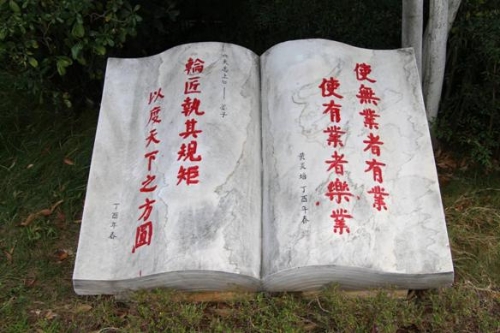 使無業者有業
使有業者樂業
黄炎培 丁酉年春
輪匠執其規矩
以度天下之方圓
丁酉年春